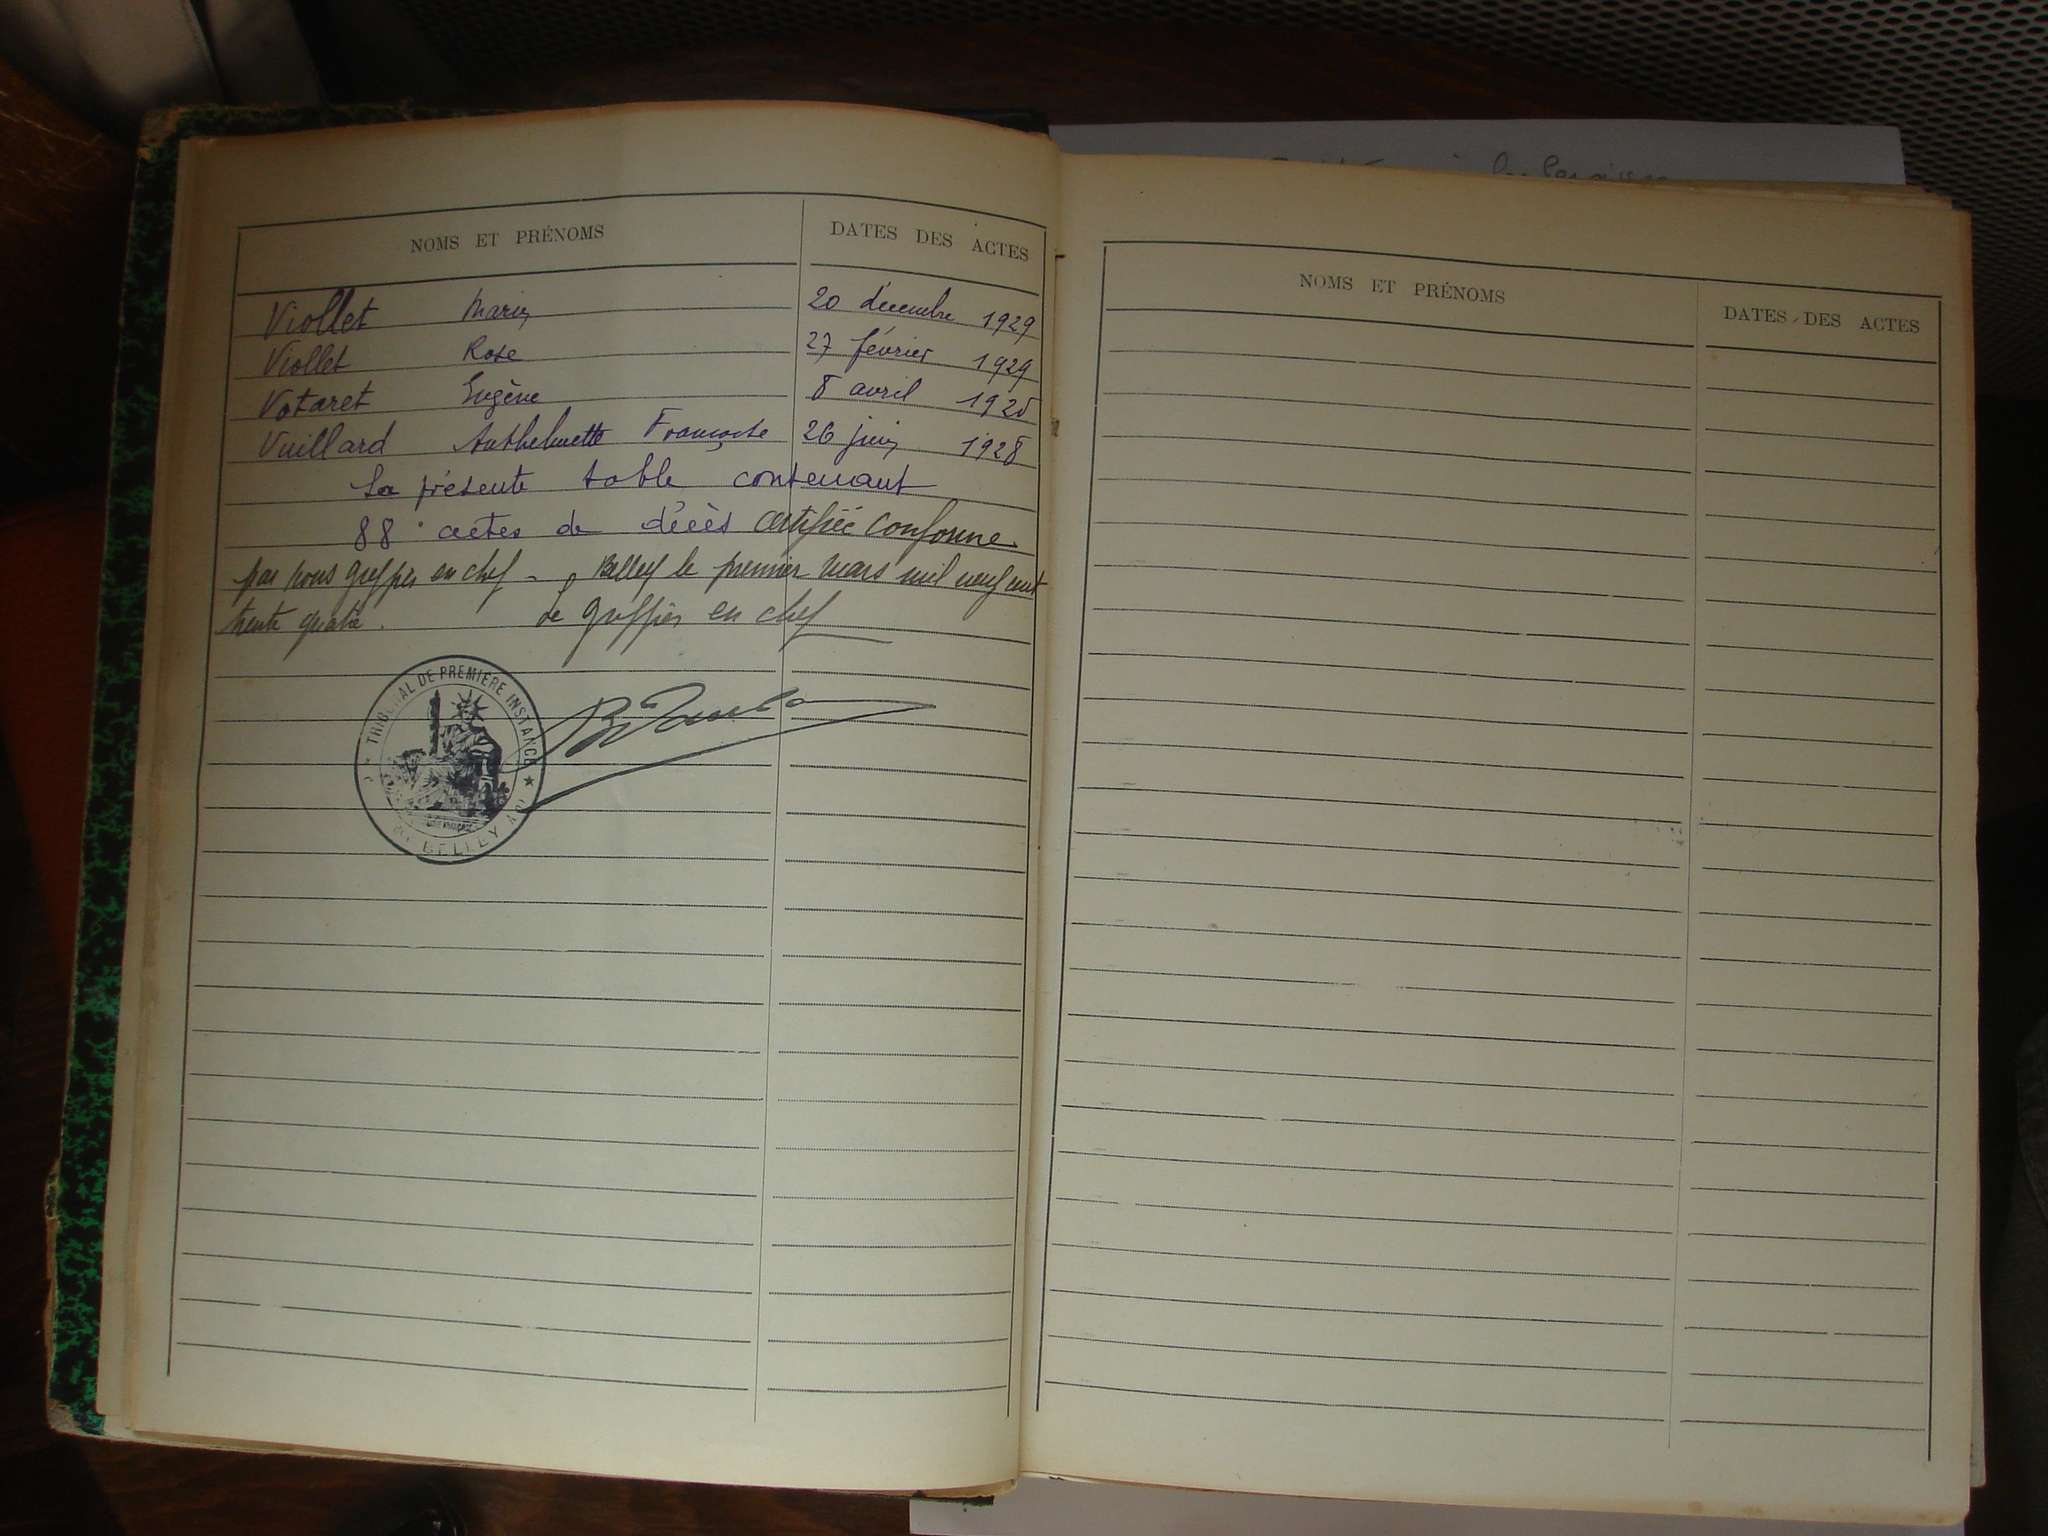 NOMS ET PRÉNOMS DATES DES ACTES
Viollet Marie 20 décembre 1929
Viollet Rose 27 février 1929
Votaret Eugène 8 avril 1928
Vuillard Anthelmette Françoise 26 juin 1928
La présente table contenant
88 actes de décès certifiée conforme
par nous greffier en chef - Belley le premier mars mil neuf cent
trente quatre. Le greffier en chef
TRIBUNAL DE PREMIÈRE INSTANCE
BELLEY
NOMS ET PRÉNOMS DATES DES ACTES